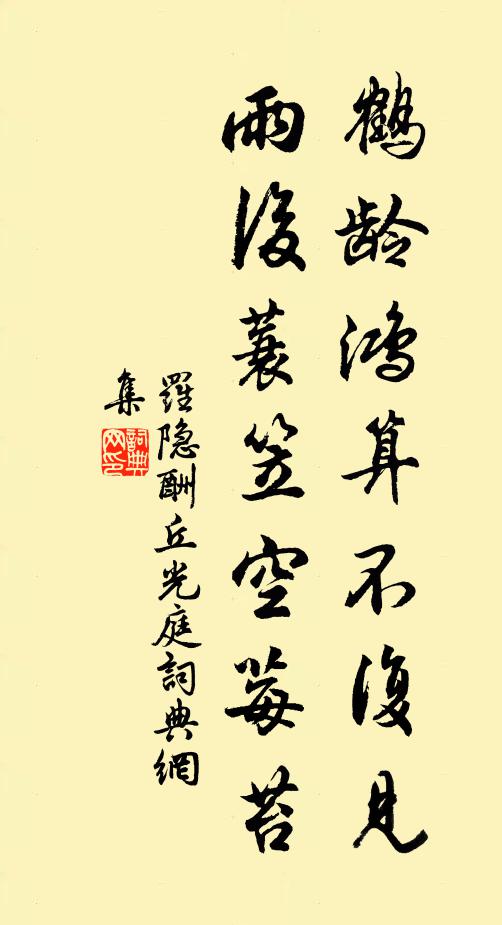 鶴齡鴻算不復見
雨後蓑笠空莓苔
羅隐酬丘光庭詞典網
集
詞典网印